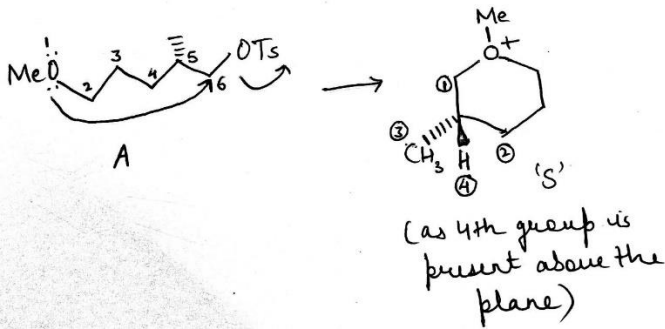 MeO 2 3 4 5 6 OTs
A
Me
O+
①
③ CH3 H ④ ②
'S'
(as 4th group is
present above the
plane)